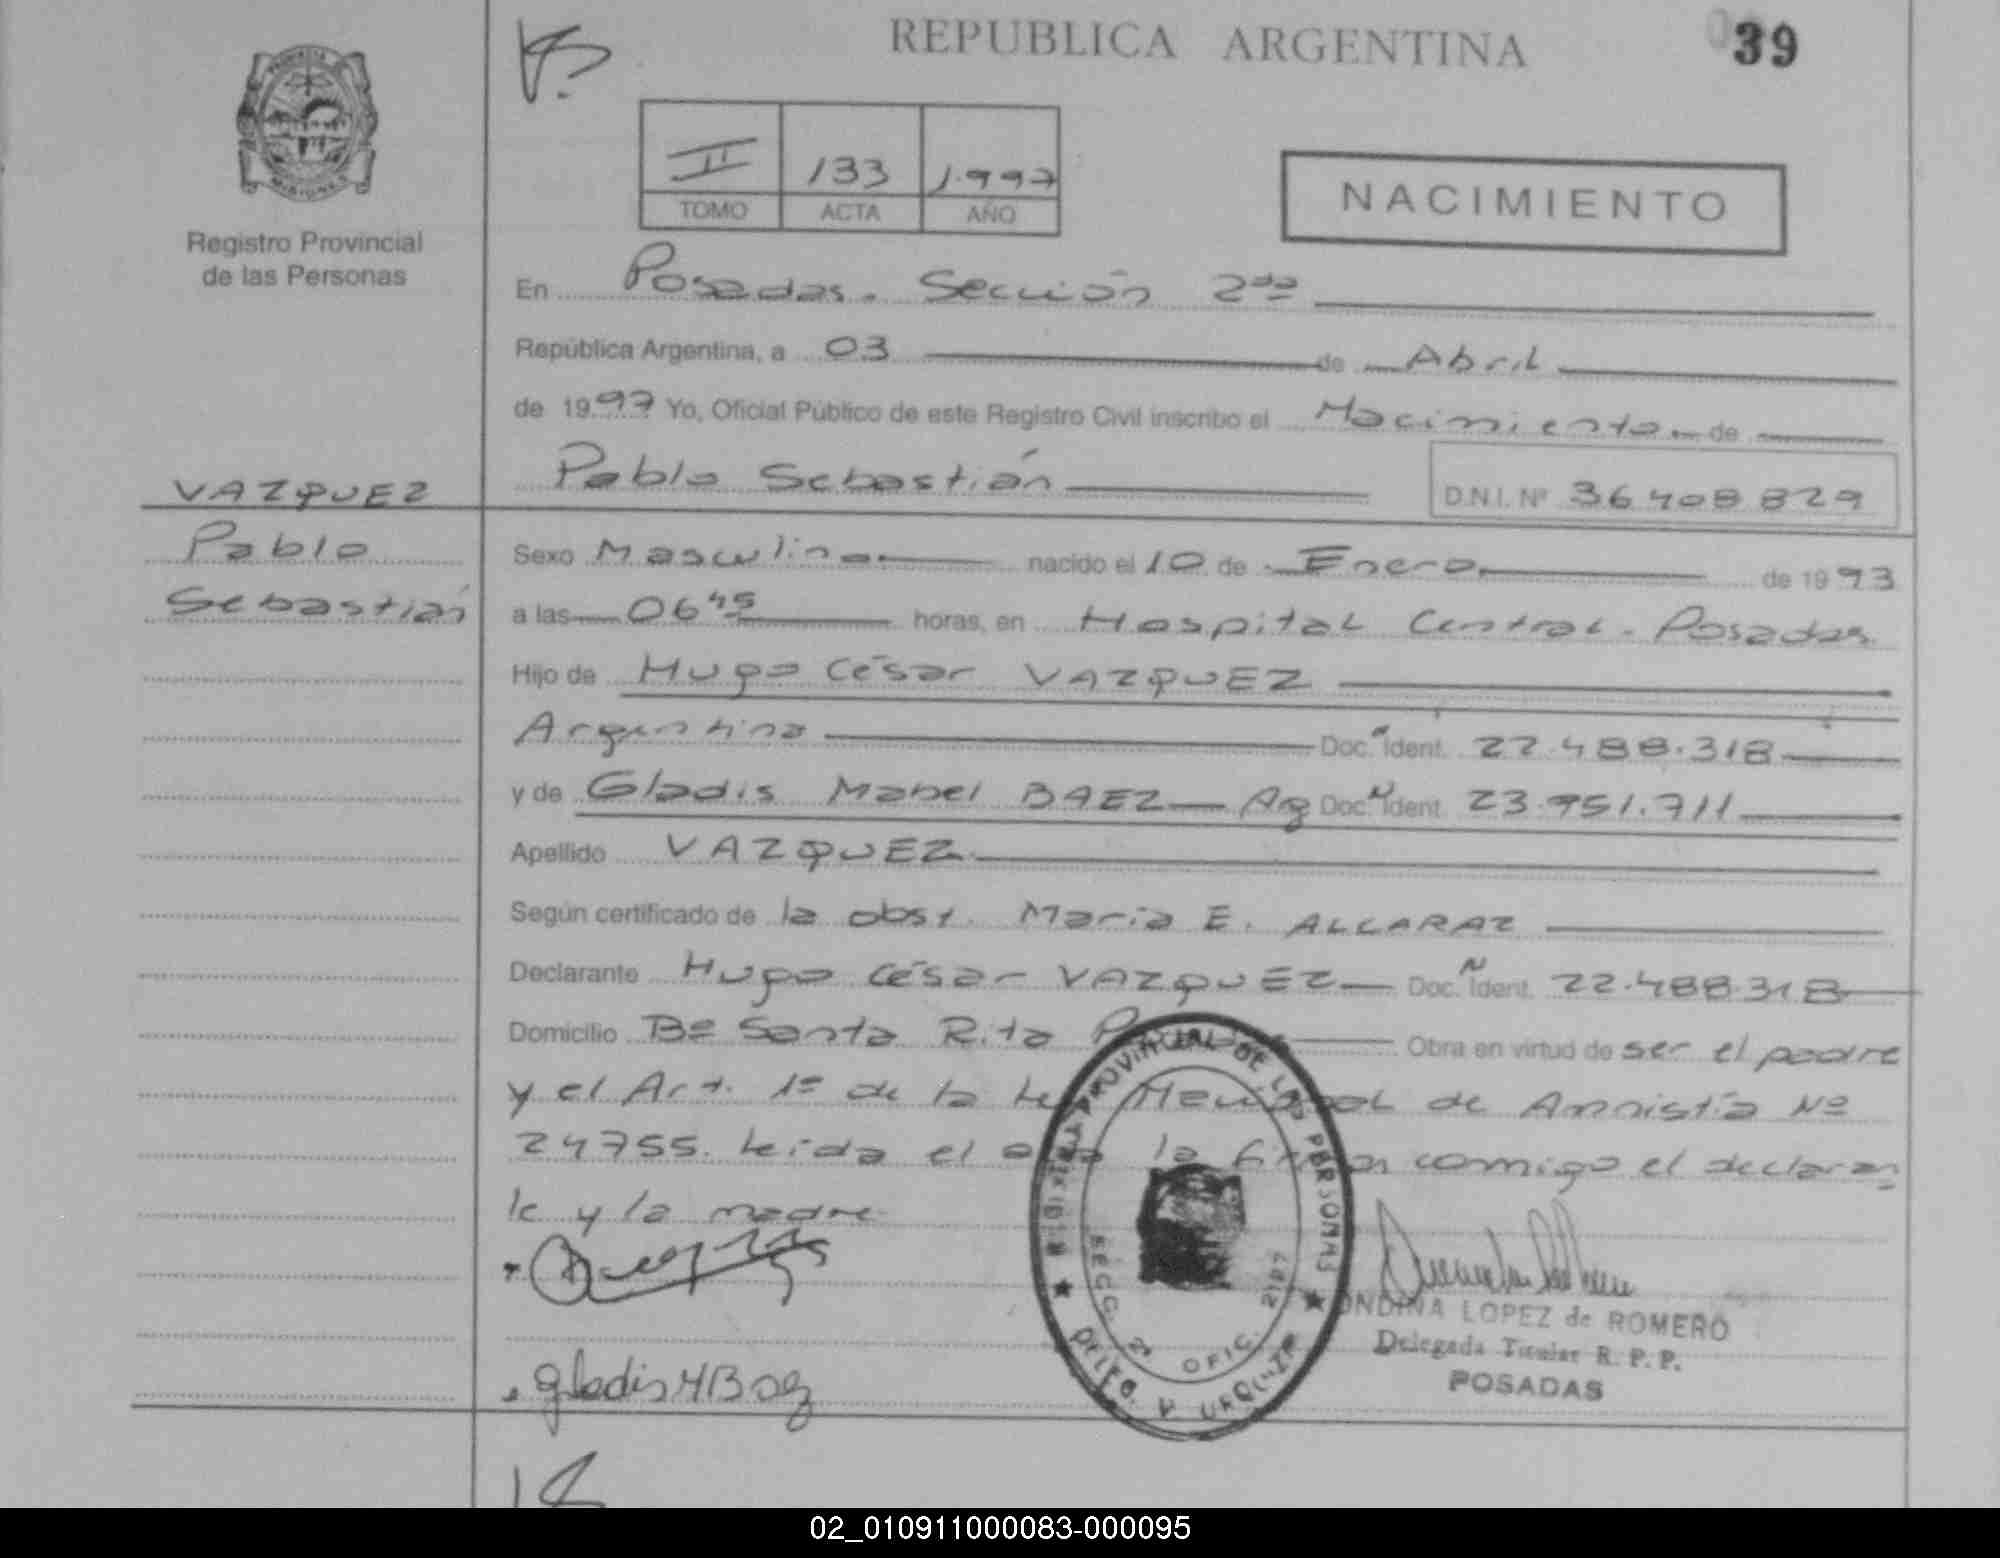 REPUBLICA ARGENTINA
39
PROVINCIA
MISIONES
Registro Provincial
de las Personas
II 133 1.997
TOMO ACTA AÑO
NACIMIENTO
En Posadas. Sección 2da
República Argentina, a 03 de Abril
de 1997 Yo, Oficial Público de este Registro Civil inscribo el Nacimiento de
Pablo Sebastián D.N.I. Nº 36408829
VAZQUEZ
Pablo
Sebastián
Sexo Masculino nacido el 10 de Enero de 1993
a las 06 45 horas, en Hospital Central - Posadas
Hijo de Hugo César VAZQUEZ
Argentina Doc. Ident. 22.488.318
y de Gladis Mabel BAEZ Arg Doc. Ident. 23.951.711
Apellido VAZQUEZ
Según certificado de la obst. María E. ALCARAZ
Declarante Hugo César VAZQUEZ Doc. Ident. 22.488318
Domicilio Bº Santa Rita Obra en virtud de ser el padre
y el Art. 1º de la de Amnistía Nº
24755. Leída el la conmigo el declaran
te y la madre
gladis M Baez
PROVINCIAL DE LAS PERSONAS
SECC. 2ª OFIC. 2107
DELEG. V. URQUIZA
ONDINA LOPEZ de ROMERO
Delegada Titular R. P. P.
POSADAS
02_010911000083-000095